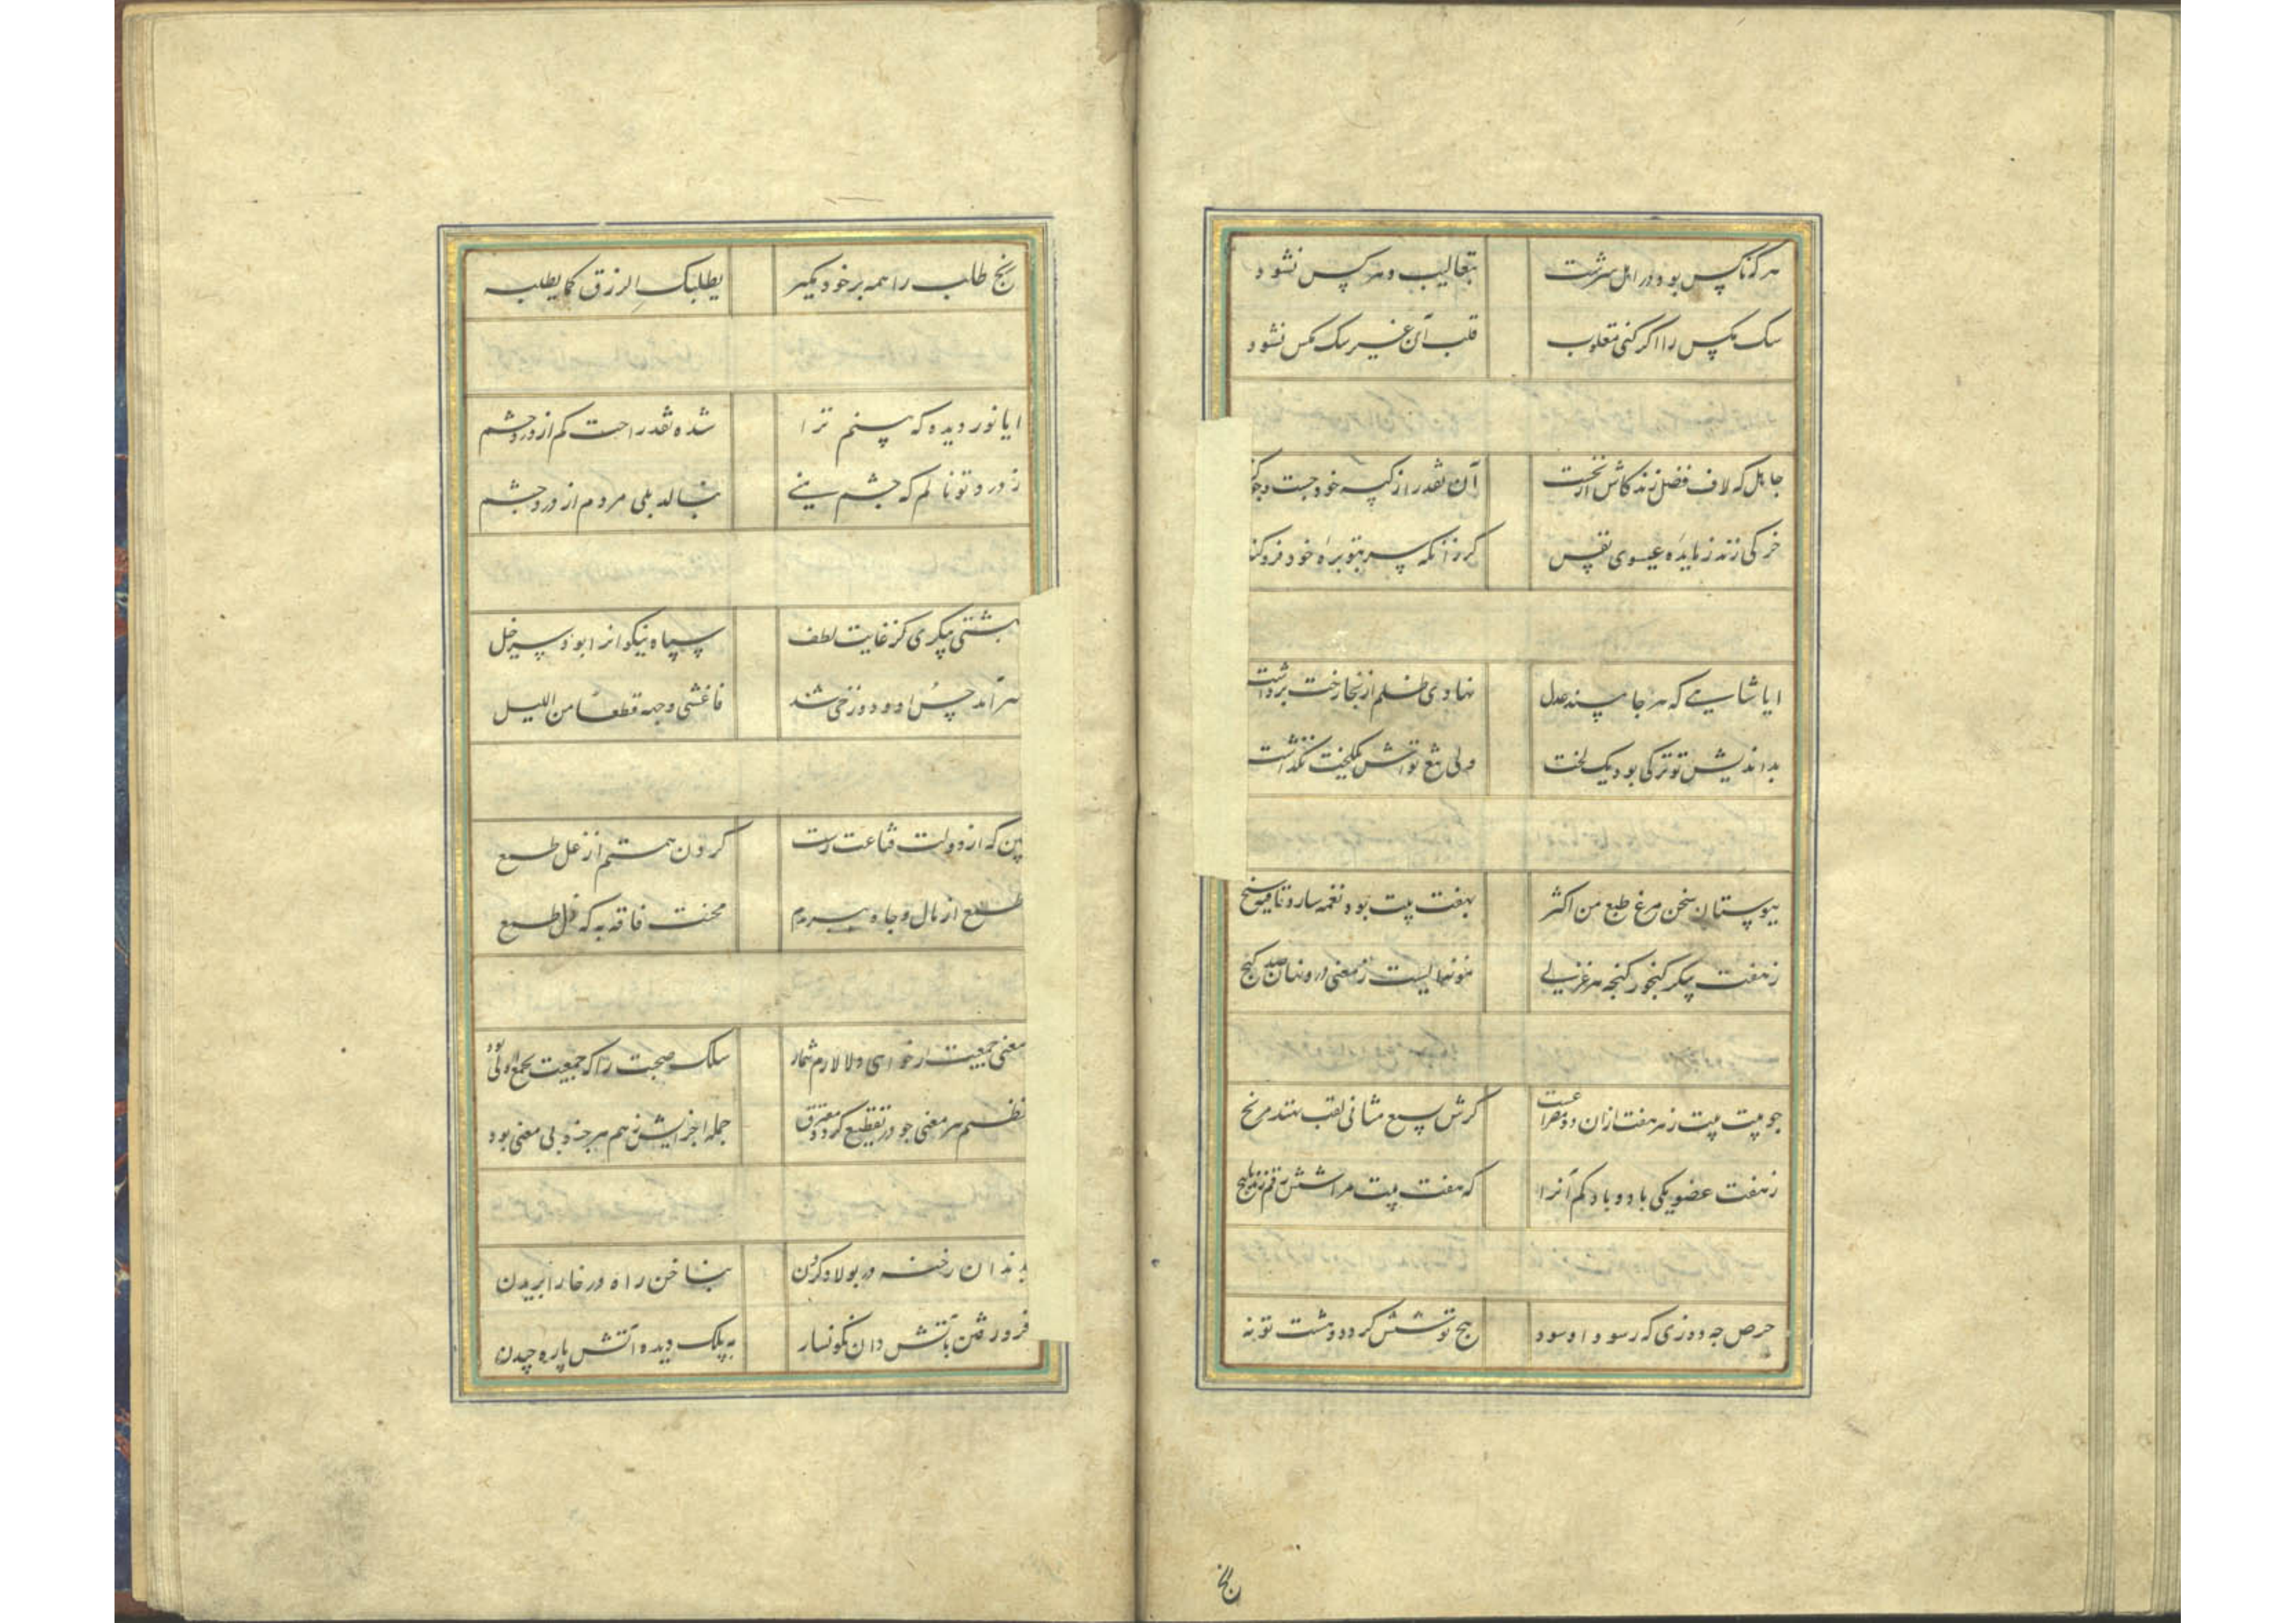 هر که ناکس بود در اصل سرشت
بتقالیب دهر کس نشود
سک مکس را اگر کنی مقلوب
قلب آن غیر سک مکس نشود
جاهل که لاف فضل زند کاش از نخست
آن نقد را ز کیسه خود جست
خر کی زند ز مایده عیسوی نفس
کر زانکه سر بتوبره خود فرو کند
ایا شاهی که هر جا عدل
نهادی ظلم از آنجا رخت برداشت
بداندیش تو ترکی بود یک لخت
ولی تیغ تواش یکلخت نکذاشت
ببوستان سخن مرغ طبع من اکثر
بهفت بیت بود نغمه ساز و قافیه سنج
ز هفت پیکر کنجور کنجه هر غزلی
نمونه ایست ز معنی درو نهان صد کنج
جو بیت بیت ز هر هفت ازان دو مصراعست
کرش سبع مثانی لقب نهند مرنج
ز هفت عضو یکی باد و باد کم آنرا
که هفت بیت مرا شش رقم زند یا پنج
حرص جه ورزی که ز سودا و سود
پنج تو شش کردد و هشت تو نه
رنج
رنج طلب را همه بر خود مکیر
یطلبک الرزق کما یطلبه
ایا نور دیده که بینم ترا
شده نقد راحت کم از درد چشم
ز درد تو نالم که چشم منی
بنالد بلی مردم از درد چشم
بهشتی پیکری کز غایت لطف
سپاه نیکوانرا بود سرخیل
بر آمد حسن او دوزخی شد
فاغشی وجهه قطعا من اللیل
بین که از دولت قناعت رست
کردن همتم از غل طمع
طمع از مال و جاه ببریدم
محنت فاقه به که ذل طمع
معنی جمعیت ار خواهی ولا لازم شمار
سلک صحبت را که جمعیت بجمع اولی بود
نظم هر معنی جو در تقطیع کردد مفترق
جمله اجزایش ز هم هر جزو بی معنی بود
بدندان رخنه در بولاد کردن
بناخن راه در خارا بریدن
فرو رفتن بآتش دان نکونسار
به پلک دیده آتش پاره چیدن